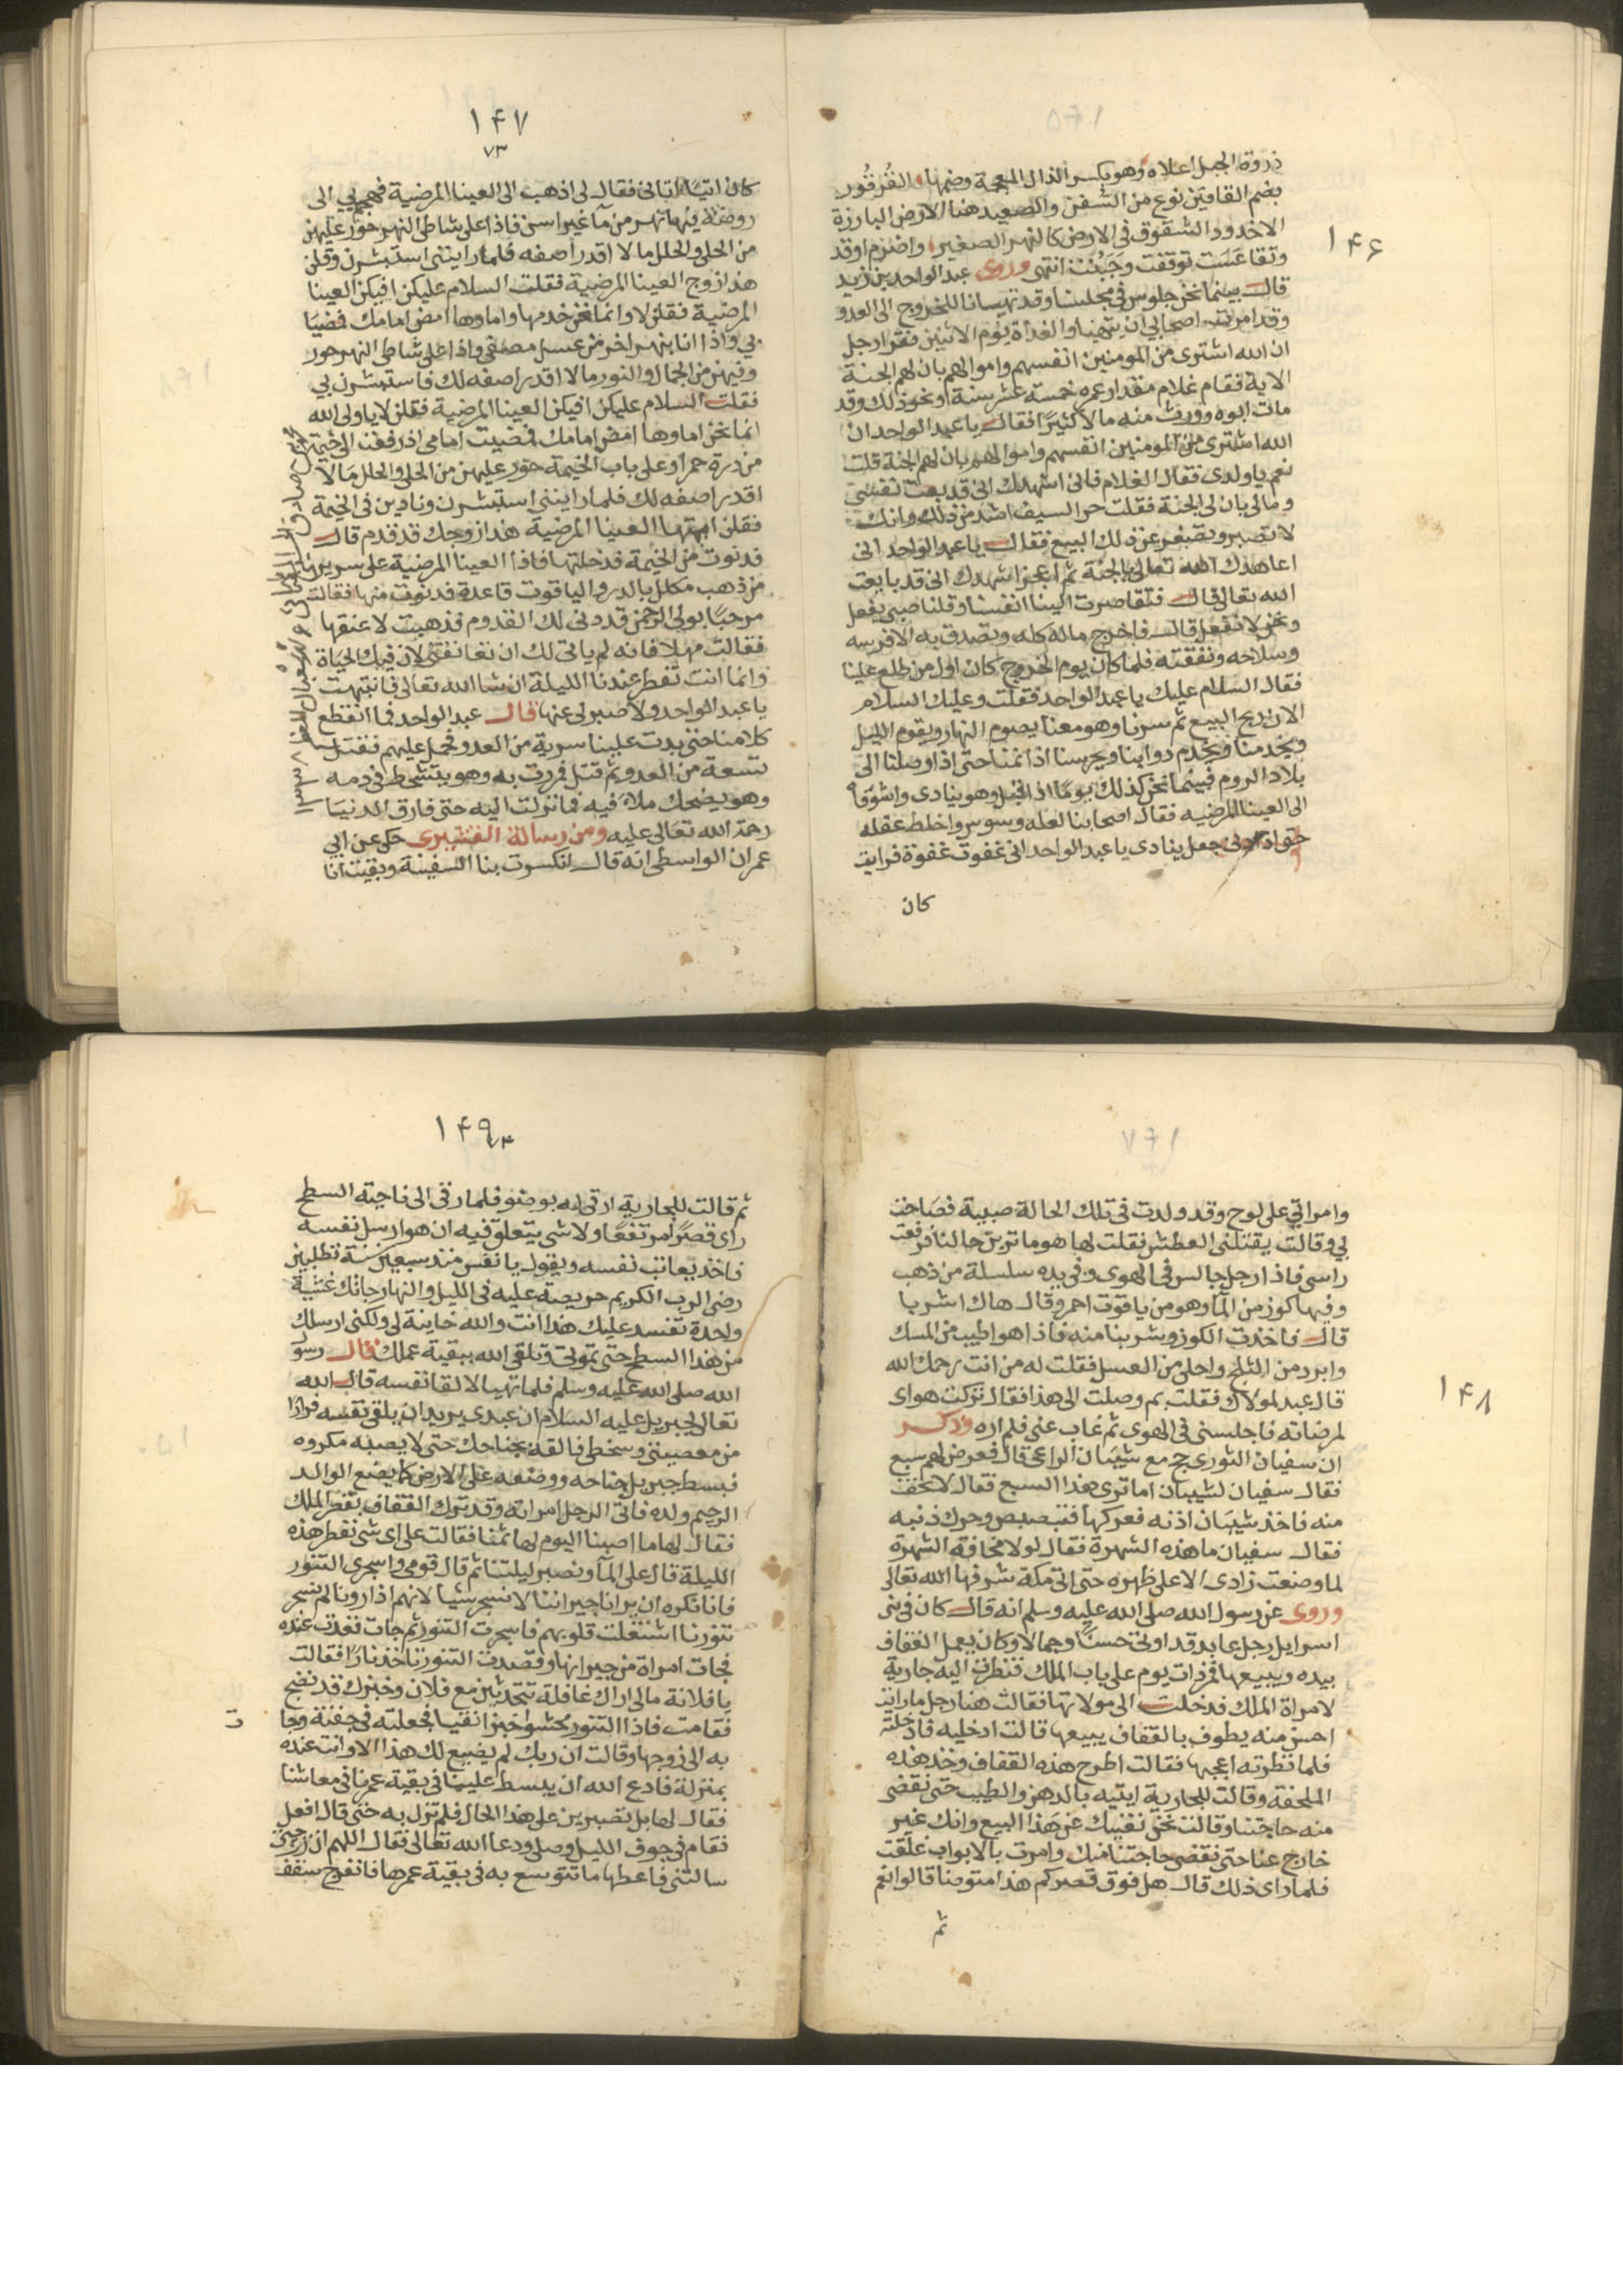 ۱۴۶
ذروة الجبل اعلاه وهو بكسر الذال المعجمة وضمها القُرقُور
بضم القافين نوع من السُفن والصعيد هنا الارض البارزة
الاخدود الشقوق فى الارض كالنهر الصغير واضرم اوقد
وتقاعَسَت توقفت وجَبُنَت انتهى وروى عبد الواحد بن زيد
قال بينما نحن جلوس فى مجلسنا وقد تهيانا للخروج الى العدو
وقد امرت اصحابي ان يتهيئوا لغداة يوم الاثنين فقرا رجل
ان الله اشترى من المومنين انفسهم واموالهم بان لهم الجنة
الاية فقام غلام مقدار عمره خمسة عشر سنة او نحو ذلك وقد
مات ابوه وورث منه مالا كثيرًا فقال يا عبد الواحد ان
الله اشترى من المومنين انفسهم واموالهم بان لهم الجنة قلت
نعم يا ولدى فقال الغلام فانى اشهدك انى قد بعت نفسى
ومالى بان لى الجنة فقلت حر السيف اشد من ذلك وانك
لا تصبر وتضعف عن ذلك البيع فقال يا عبد الواحد انى
اعاهدك الله تعالى بالجنة ثم اعجز اشهدك انى قد بايعت
الله تعالى قال فتقاصرت الينا انفسنا وقلنا صبى يفعل
ونحن لا نفعل قال فاخرج ماله كله وتصدق به الا فرسه
وسلاحه ونفقته فلما كان يوم الخروج كان اول من طلع علينا
فقال السلام عليك يا عبد الواحد فقلت وعليك السلام
الان ربح البيع ثم سرنا وهو معنا يصوم النهار ويقوم الليل
ويخدمنا ويخدم دوابنا ويحرسنا اذا نمنا حتى اذا وصلنا الى
بلاد الروم فبينما نحن كذلك يومًا اذ اقبل وهو ينادى واشوقاه
الى العينا المرضيه فقال اصحابنا لعله وسوس واخلط عقله
حتى اذا دنى جعل ينادى يا عبد الواحد انى غفوت غفوة فرايت
كان
۱۴۷
۷۳
كان اتيًا اتانى فقال لى اذهب الى العينا المرضية فهجم بي الى
روضة فيها نهر من مآ غير اسن فاذا على شاطى النهر حور عليهن
من الحلى والحلل ما لا اقدر اصفه فلما راينني استبشرن وقلن
هذا زوج العينا المرضية فقلت السلام عليكن افيكن العينا
المرضية فقلن لا وانما نحن خدمها واماوها امض امامك فمضيا
بي واذا انا بنهر اخر من عسل مصفى واذا على شاطى النهر حور
وفيهن من الجمال والنور ما لا اقدر اصفه لك فاستبشرن بي
فقلت السلام عليكن افيكن العينا المرضية فقلن لا يا ولى الله
انما نحن اماوها امض امامك فمضيت امامى اذ رفعن الى خيمة
من درة حمرا وعلى باب الخيمة حور عليهن من الحلى والحلل ما لا
اقدر اصفه لك فلما راينني استبشرن ونادين فى الخيمة
فقلن ايتها العينا المرضية هذا زوجك قد قدم قال
فدنوت من الخيمة فدخلتها فاذا العينا المرضية على سرير
من ذهب مكلل بالدر والياقوت قاعدة فدنوت منها فقالت
مرحبًا بولى الرحمن قد دنى لك القدوم فذهبت لاعنقها
فقالت مهلا فانه لم ياتى لك ان تعانقنى لان فيك الحياة
وانما انت تفطر عندنا الليلة ان شا الله تعالى فانتبهت
يا عبد الواحد ولا صبر لى عنها قال عبد الواحد فما انقطع
كلامنا حتى بدت علينا سرية من العدو فحمل عليهم فقتل
تسعة من العدو ثم قتل فمررت به وهو يتشحط فى دمه
وهو يضحك ملا فيه فما نزلت اليه حتى فارق الدنيا
رحمة الله تعالى عليه ومن رسالة القشيرى حكى عن ابي
عمران الواسطى انه قال انكسرت بنا السفينة وبقيت انا
۱۴۸
وامراتي على لوح وقد ولدت فى تلك الحالة صبية فصاحت
لى وقالت يقتلنى العطش فقلت لها هو ما ترين حالنا فرفعت
راسى فاذا رجل جالس فى الهوى وفى يده سلسلة من ذهب
وفيها كوز من المآ وهو من ياقوت احمر وقال هاك اشربا
قال فاخذت الكوز وشربنا منه فاذا هو اطيب من المسك
وابرد من الثلج واحلى من العسل فقلت له من انت رحمك الله
قال عبد لمولاك فقلت بم وصلت الى هذا فقال تركت هواى
لمرضاته فاجلسنى فى الهوى ثم غاب عنى فلم اره وذكر
ان سفيان الثورى حج مع شيبان الراعى قال فعرض لهم سبع
فقال سفيان لشيبان اما ترى هذا السبع فقال لا تخف
منه فاخذ شيبان اذنه فعركها فتبصبص وحرك ذنبه
فقال سفيان ما هذه الشهرة فقال لولا مخافة الشهرة
لما وضعت زادى الا على ظهره حتى اتى مكة شرفها الله تعالى
وروى عن رسول الله صلى الله عليه وسلم انه قال كان فى بنى
اسرايل رجل عابد قد اوتى حسنًا وجمالا وكان يعمل القفاف
بيده ويبيعها فمر ذات يوم على باب الملك فنظرت اليه جارية
لامراة الملك فدخلت الى مولاتها فقالت هنا رجل ما رايت
احسن منه يطوف بالقفاف يبيعها قالت ادخليه فادخلته
فلما نظرته اعجبها فقالت اطرح هذه القفاف وخذ هذه
الملحفة وقالت للجارية ايتيه بالدهن والطيب حتى نقضى
منه حاجتنا وقالت نحن نغنيك عن هذا البيع وانك غير
خارج عنا حتى نقضى حاجتنا منك وامرت بالابواب غلقت
فلما راى ذلك قال هل فوق قصركم هذا متوضا قالوا نعم
ثم
۱۴۹
ثم قالت للجارية ارقى له بوضو فلما رقى الى ناحية السطح
راى قصرًا مرتفعًا ولا شى يتعلق فيه ان هو ارسل نفسه
فاخذ يعاتب نفسه ويقول يا نفس منذ سبعين سنة تطلبين
رضى الرب الكريم حريصة عليه فى الليل والنهار جاتك عشية
واحدة تفسد عليك هذا انت والله خاينة لى ولكنى ارسلك
من هذا السطح حتى تموتى وتلقى الله ببقية عملك قال رسو
الله صلى الله عليه وسلم فلما تهيا لالقا نفسه قال الله
تعالى لجبريل عليه السلام ان عبدى يريد ان يلقى نفسه فرارًا
من معصيتى وسخطى فالقه بجناحك حتى لا يصبه مكروه
فبسط جبريل جناحه ووضعه على الارض كما يضع الوالد
الرحيم ولده فاتى الرجل امراته وقد ترك القفاف بقصر الملك
فقال لها ما اصبنا اليوم لها ثمنا فقالت على اى شى نفطر هذه
الليلة قال على المآ ونصبر ليلتنا ثم قال قومى واسجرى التنور
فانا نكره ان يرانا جيراننا لا نسجر شيا لانهم اذا رونا لم نسجر
تنورنا اشتغلت قلوبهم فاسجرت التنور ثم جات فقعدت عنده
فجات امراة من جيرانها وقصدت التنور تاخذ نارًا فقالت
يا فلانة مالى اراك غافلة تتحدثين مع فلان وخبزك قد نضج
فقامت فاذا التنور محشوا خبزا نقيا فجعلته فى جفنة وجات
به الى زوجها وقالت ان ربك لم يضيع لك هذا الا وانت عنده
بمنزلة فادع الله ان يبسط علينا فى بقية عمرنا فى معاشنا
فقال لها بل تصبرين على هذا الحال فلم تزل به حتى قال افعل
فقام فى جوف الليل وصلى ودعا الله تعالى فقال اللهم ان زوجتى
سالتنى فاعطها ما تتوسع به فى بقية عمرها فانفرج سقف